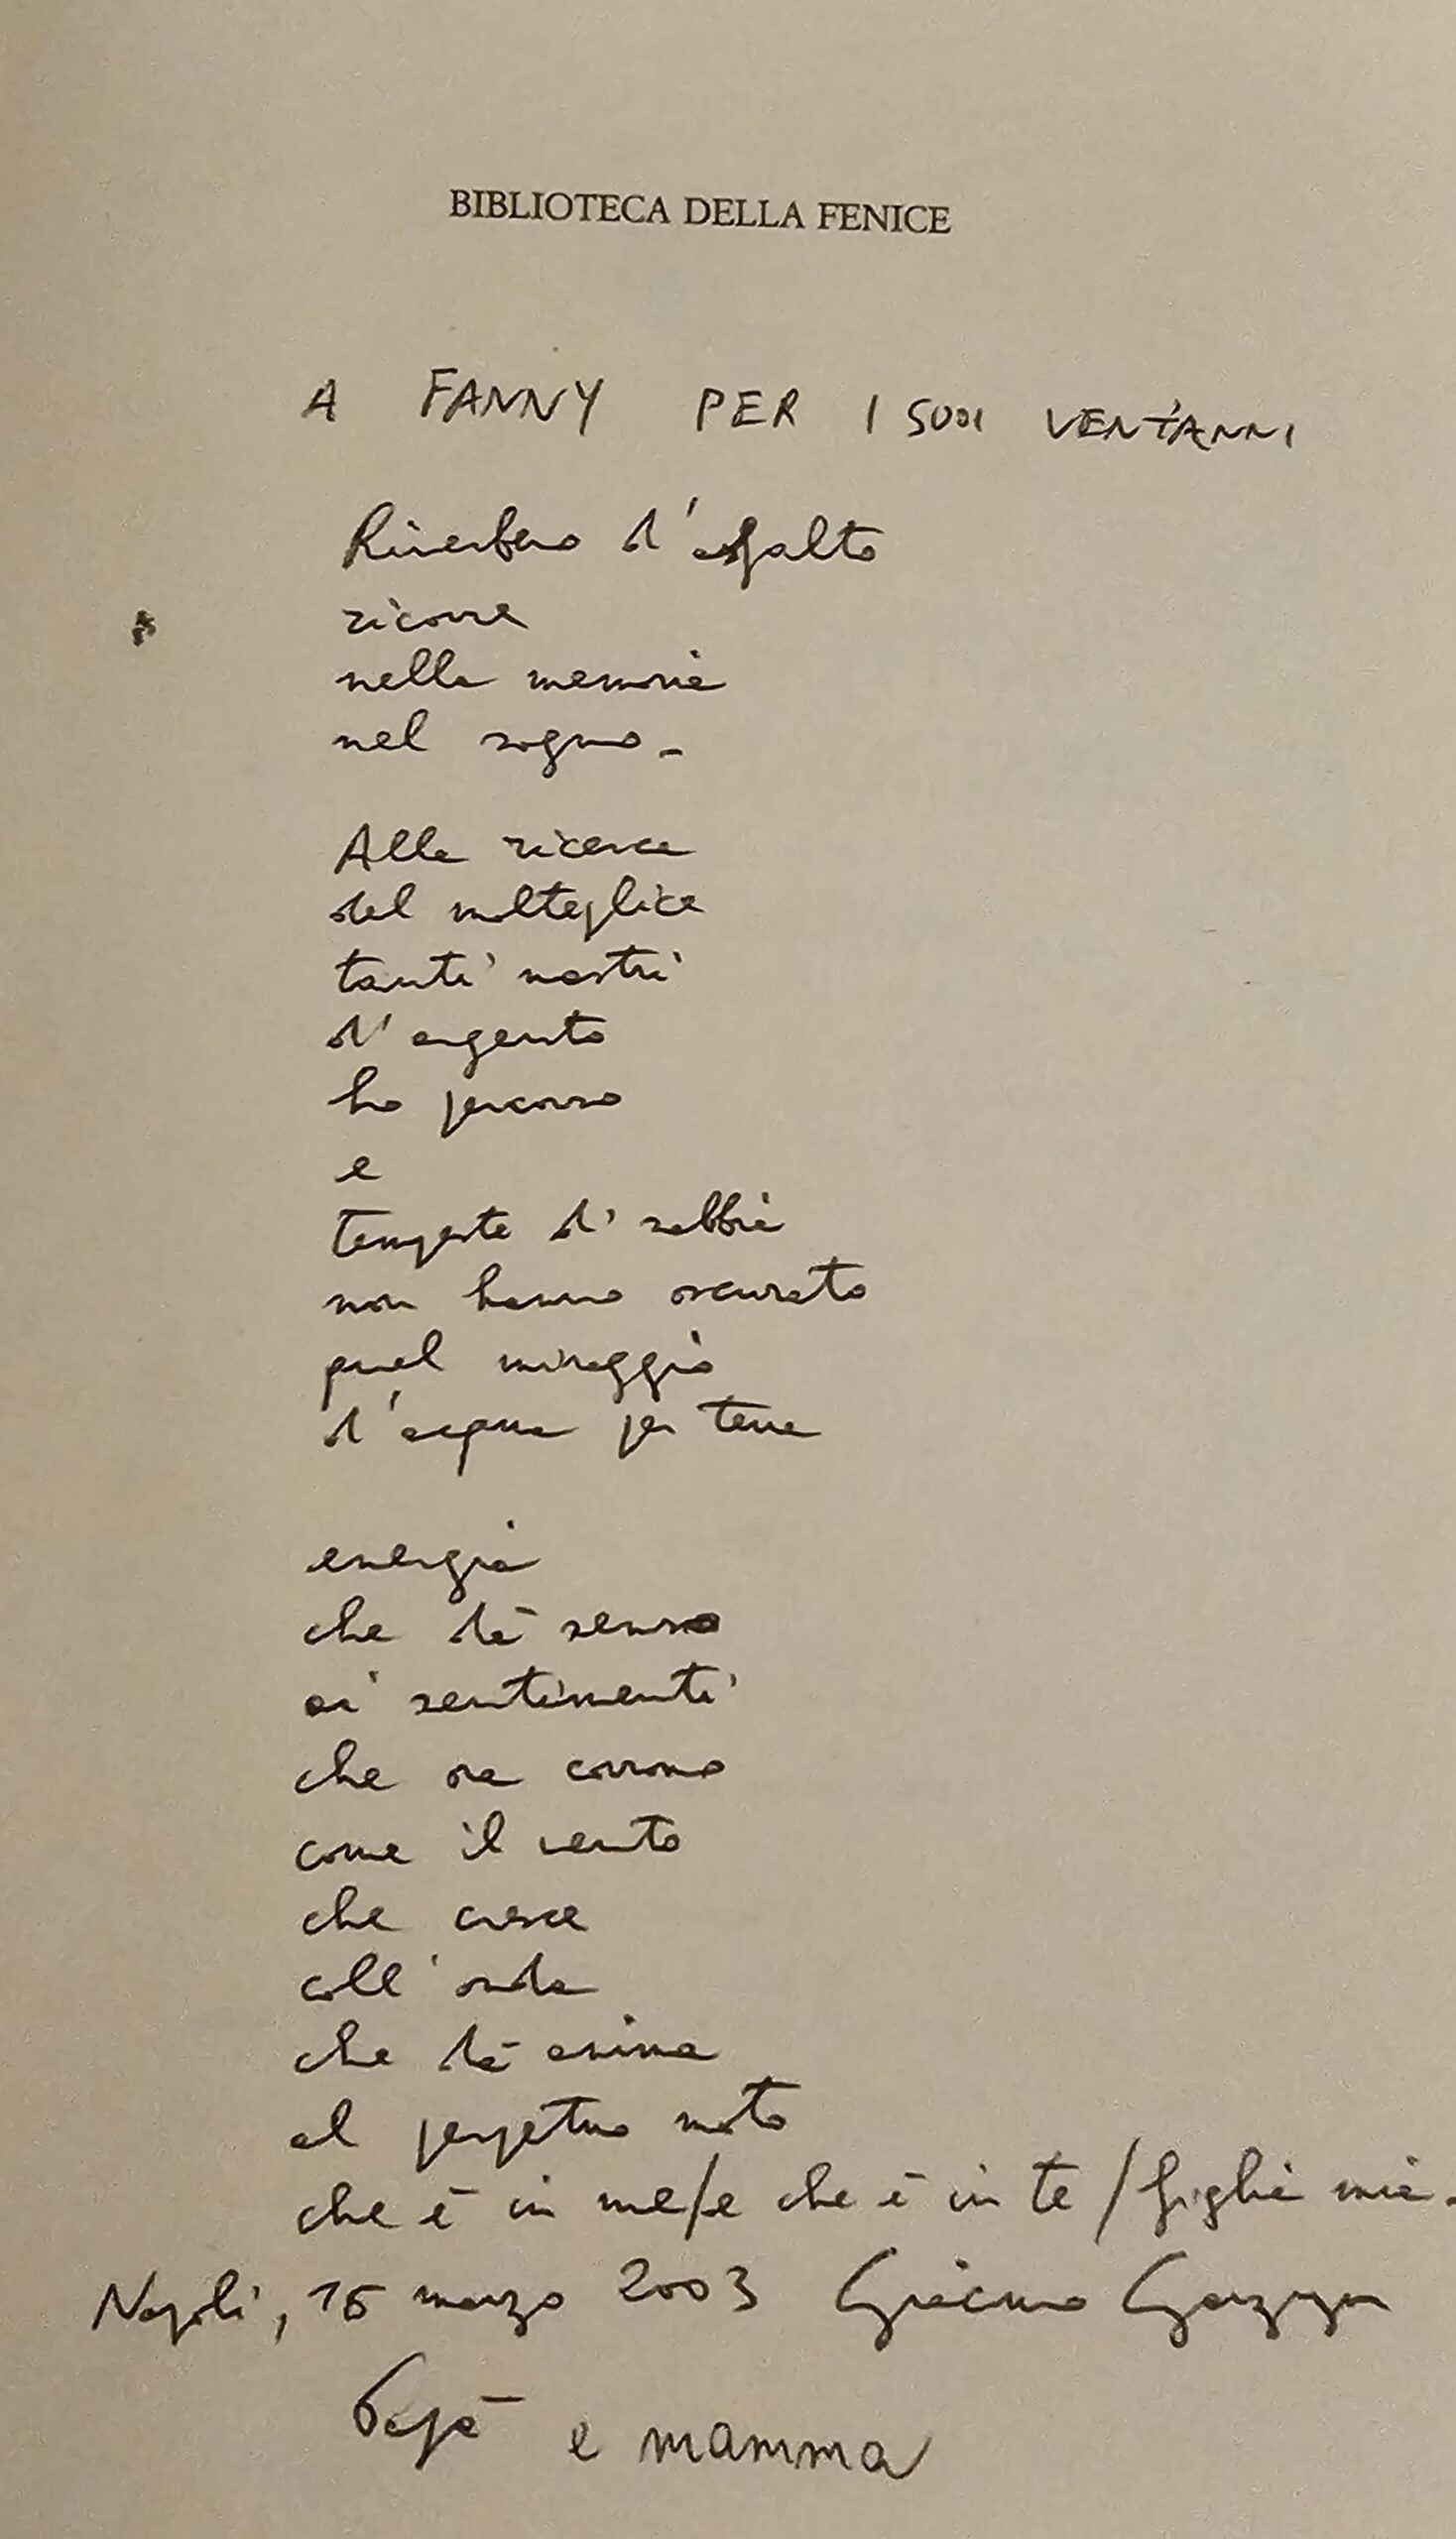 BIBLIOTECA DELLA FENICE
A FANNY PER I SUOI VENT'ANNI
Riverbero d'asfalto
ricorre
nella memoria
nel sogno.
Alla ricerca
del molteplice
tanti nastri
d'argento
ho percorso
e
tempeste di sabbia
non hanno oscurato
quel miraggio
d'acqua per terra
energia
che dà senso
ai sentimenti
che ora corrono
come il vento
che cresce
coll'onda
che dà anima
al perpetuo moto
che è in me/e che è in te/figlia mia.
Napoli, 15 marzo 2003 Giacomo Garzya
Papà e mamma